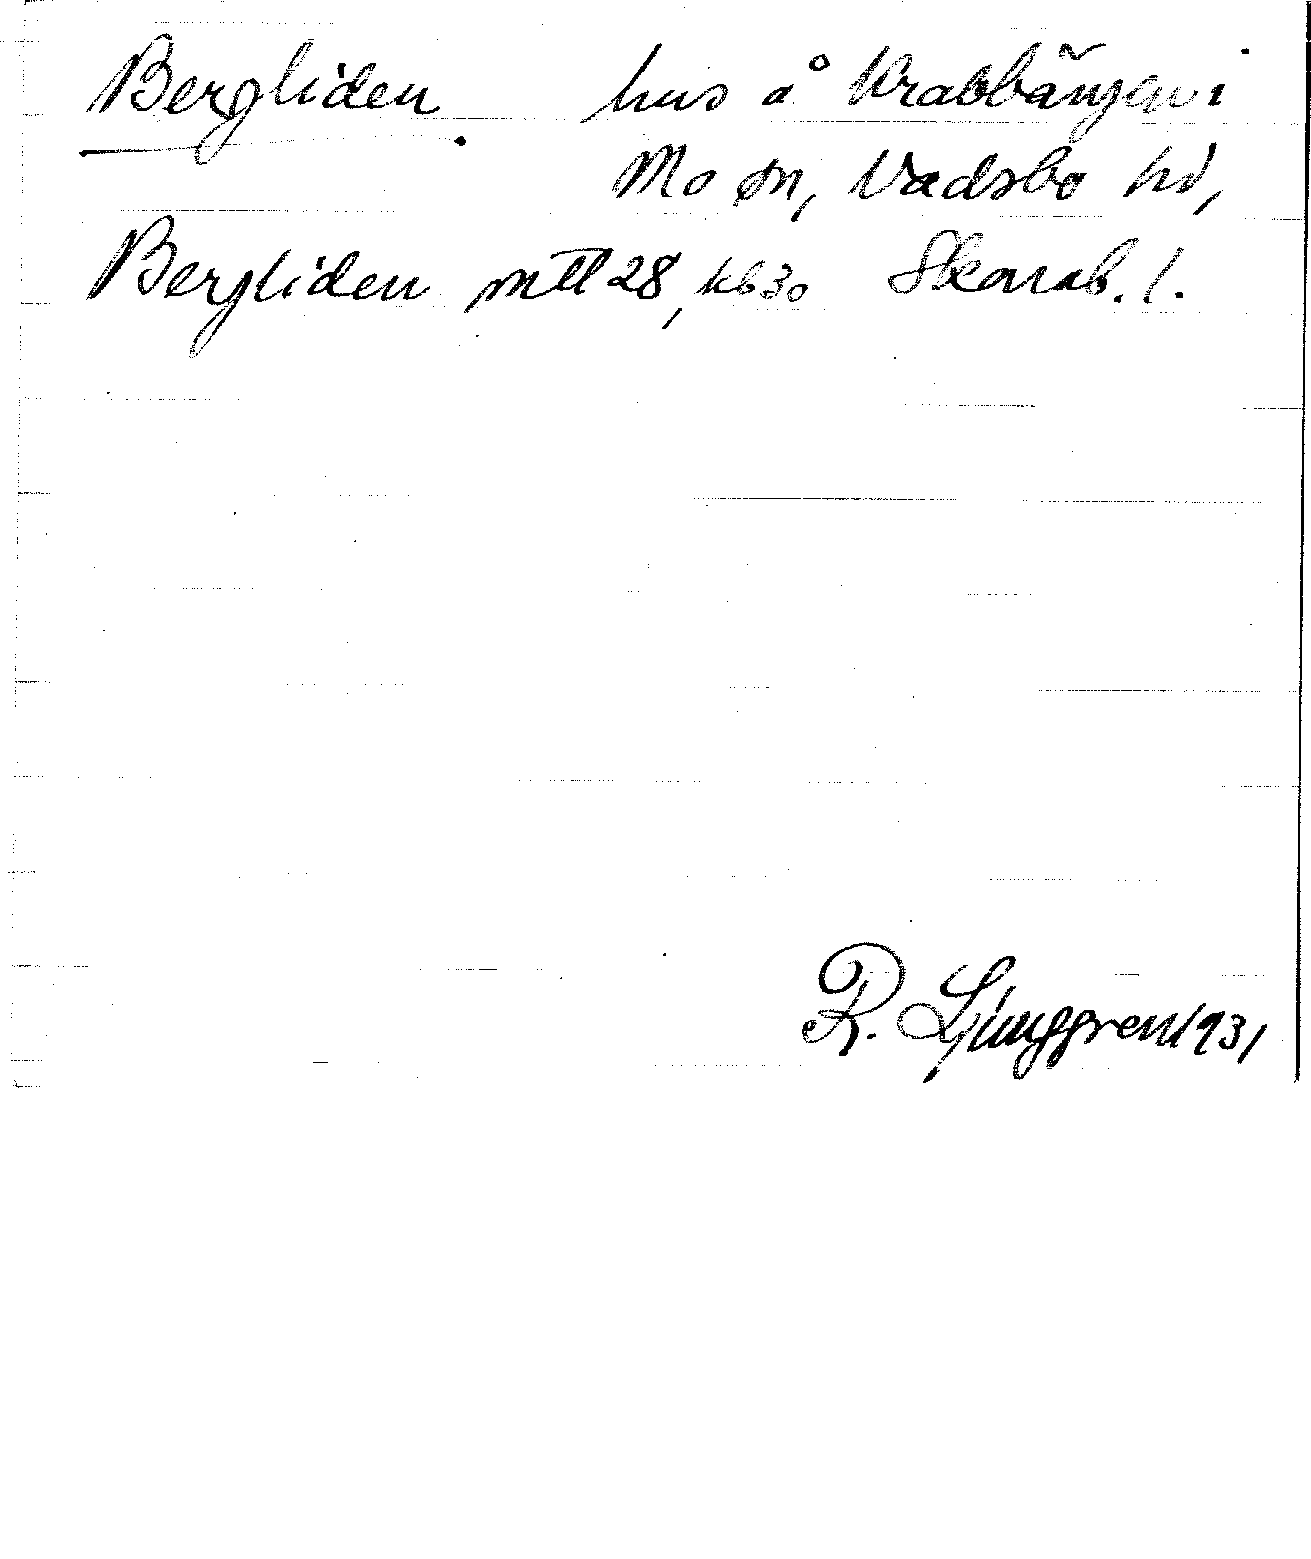 Bergliden. hus å Krabbängen i
Mo sn, Vadsbo hd,
Bergliden mtl 28, kb 30 Skarab. l.
R. Ljunggren 1931